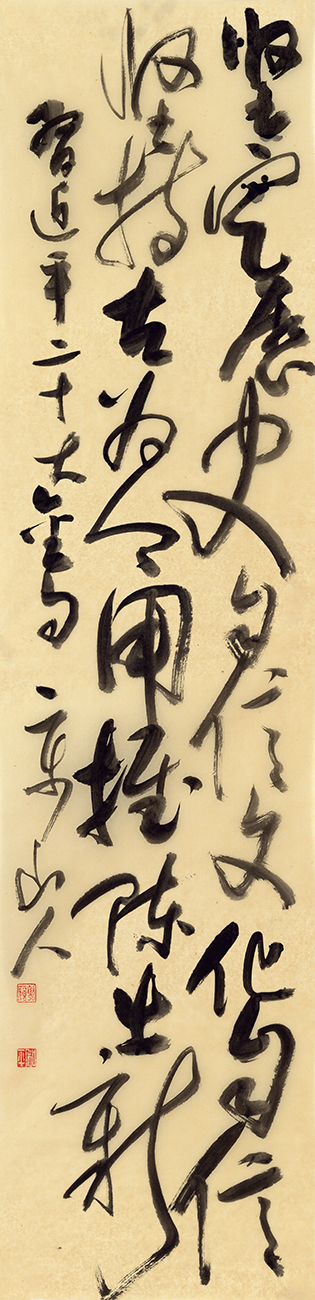 坚定歷史自信文化自信
坚持古为今用推陈出新
習近平二十大金句 山人